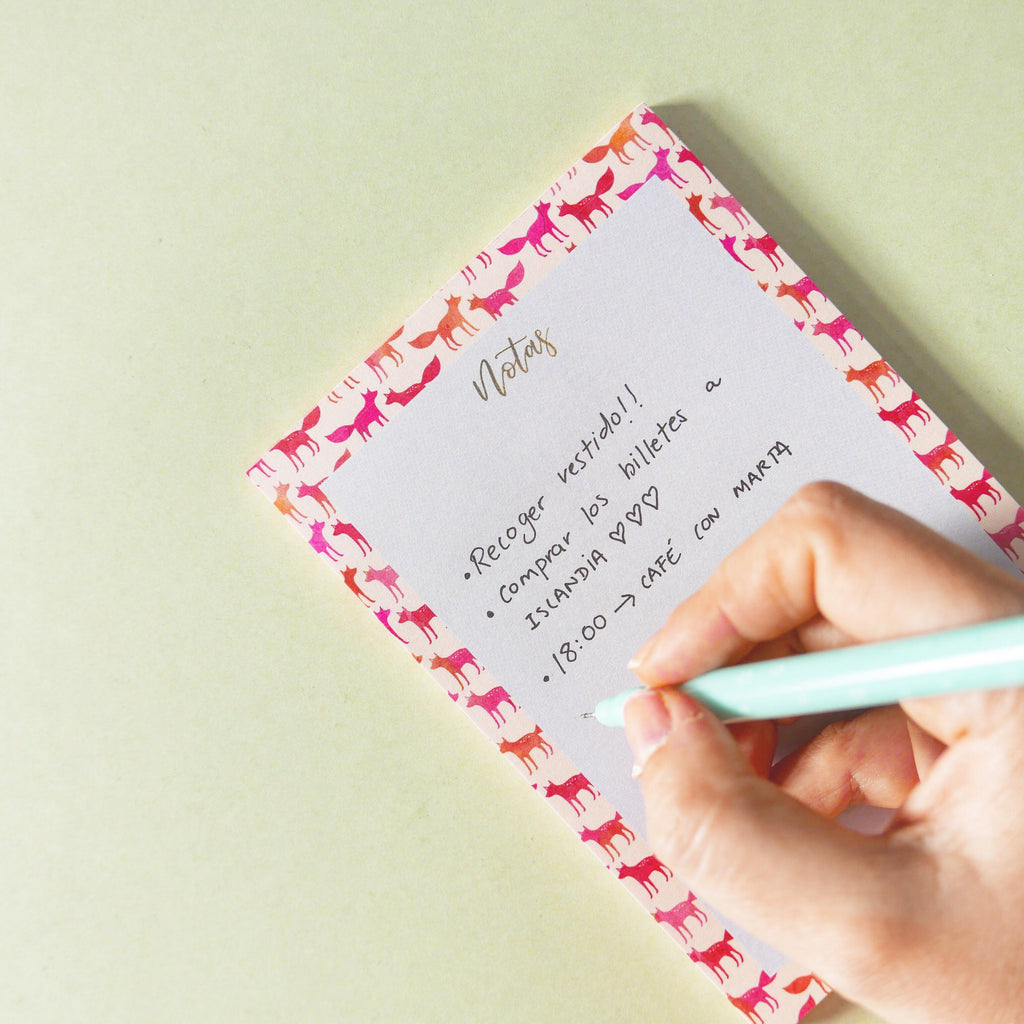 Notas
• Recoger vestido!!
• Comprar los billetes a
ISLANDIA ♡♡♡
• 18:00 → CAFÉ CON MARTA